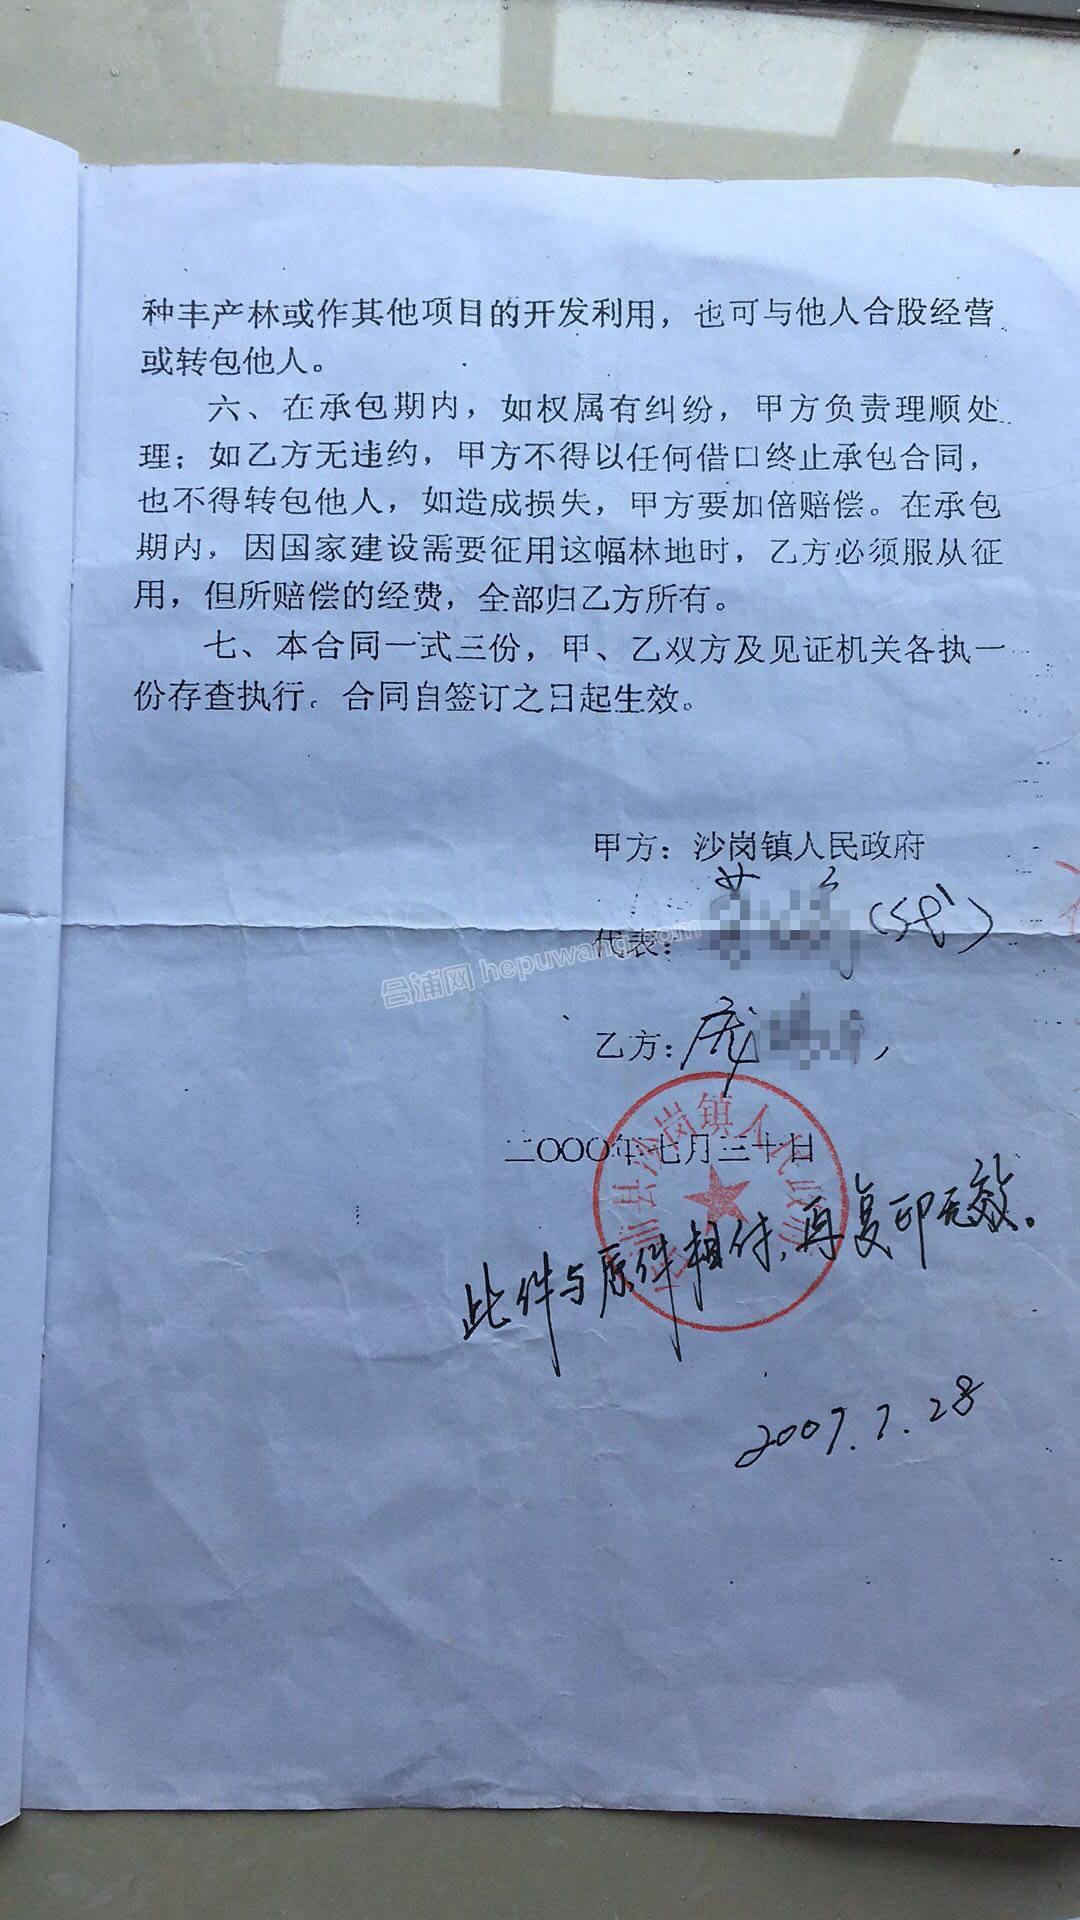 种丰产林或作其他项目的开发利用，也可与他人合股经营
或转包他人。
六、在承包期内，如权属有纠纷，甲方负责理顺处
理；如乙方无违约，甲方不得以任何借口终止承包合同，
也不得转包他人，如造成损失，甲方要加倍赔偿。在承包
期内，因国家建设需要征用这幅林地时，乙方必须服从征
用，但所赔偿的经费，全部归乙方所有。
七、本合同一式三份，甲、乙双方及见证机关各执一
份存查执行。合同自签订之日起生效。
甲方：沙岗镇人民政府
代表：
合浦网 hepuwang.com
乙方：庞
二〇〇〇年七月三十日
浦县沙岗镇人民政府
此件与原件相付，再复印无效。
2007.7.28